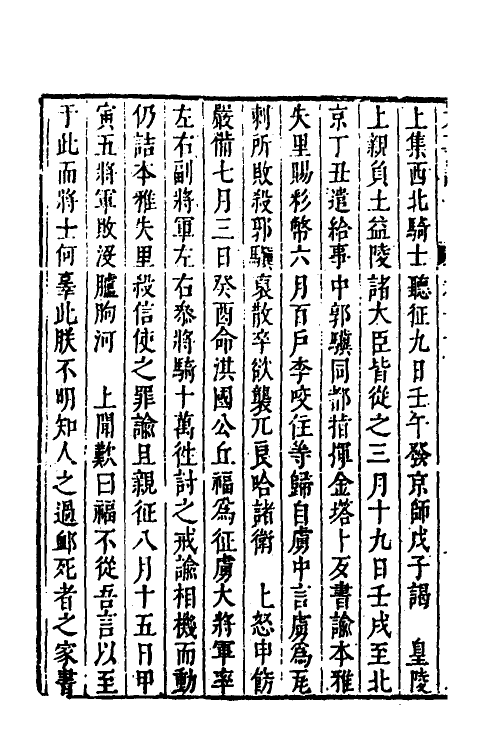 上集西北騎士聽征九日壬午發京師戊子謁　皇陵
上親負土益陵諸大臣皆從之三月十九日壬戌至北
京丁丑遣給事中郭驥同都指揮金塔卜歹書諭本雅
失里賜彩幣六月百戶李咬住等歸自虜中言虜為瓦
剌所敗殺郭驥裒散卒欲襲兀良哈諸衛　上怒申飭
嚴備七月三日癸酉命淇國公丘福為征虜大將軍率
左右副將軍左右叅將騎十萬徃討之戒諭相機而動
仍詰本雅失里殺信使之罪諭且親征八月十五日甲
寅五將軍敗沒臚朐河　上聞歎曰福不從吾言以至
于此而將士何辜此朕不明知人之過䘏死者之家書